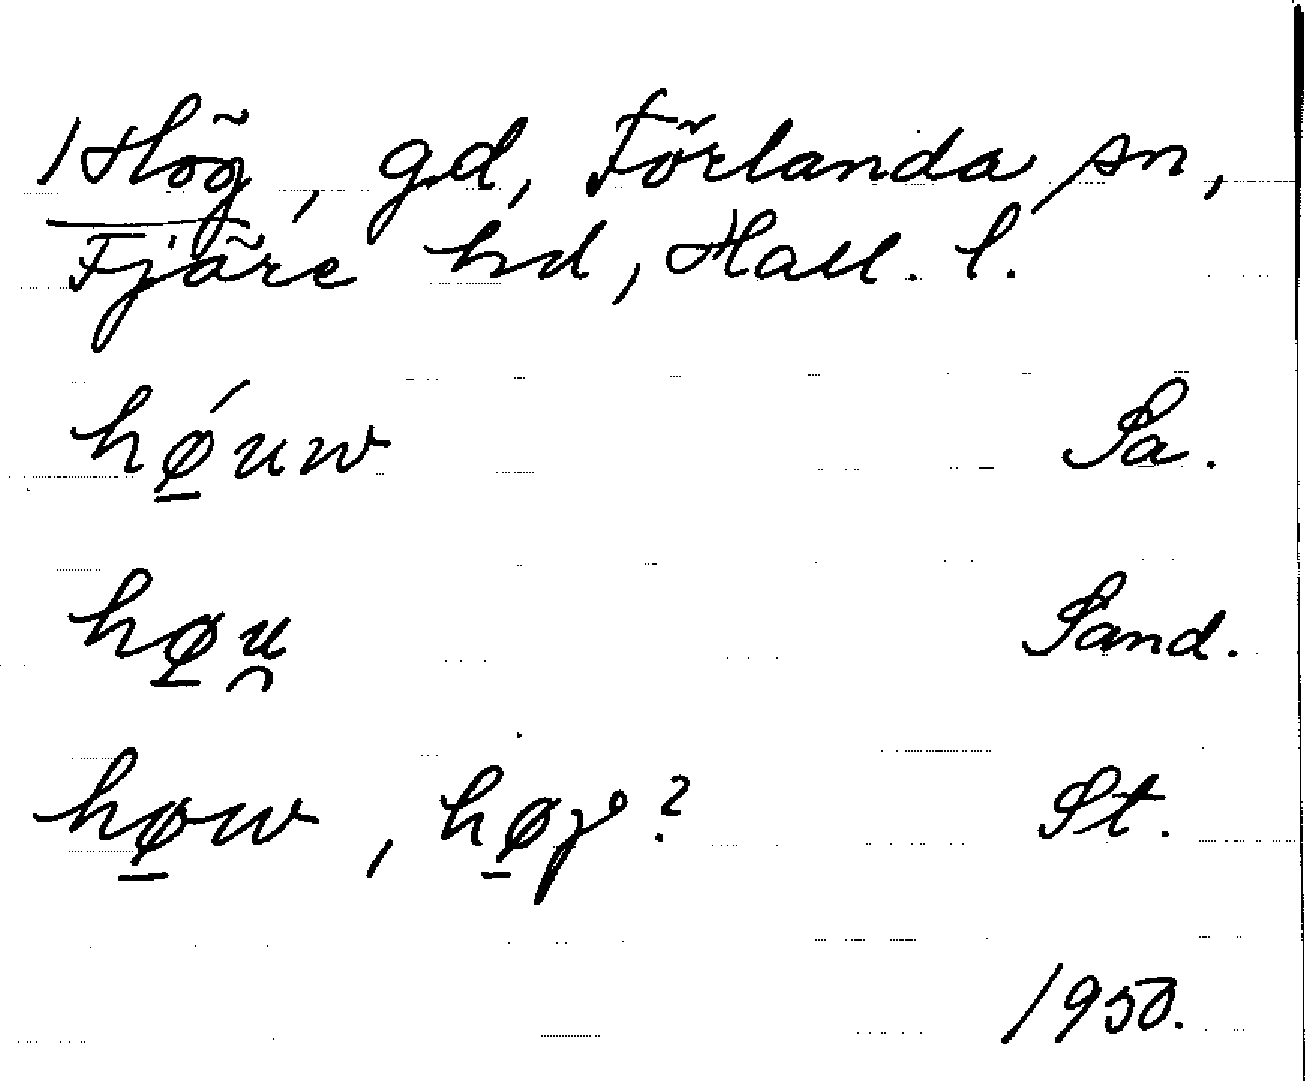 Hög, gd, Förlanda sn,
Fjäre hd, Hall. l.
hǿ̱uw Sa.
hø̱u̯ Sand.
hø̱w, hø̱γ? St.
1950.